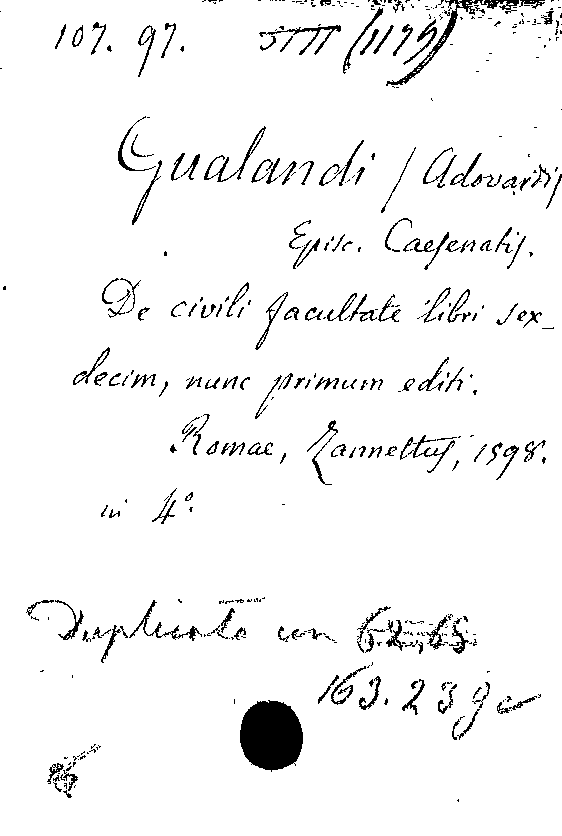 107. 97.
Gualandi / Adovardi,
Episc. Caesenatis.
De civili facultate libri sex_
decim, nunc primum editi.
Romae, Zannettus, 1598.
in 4°.
Duplicato con
163.23